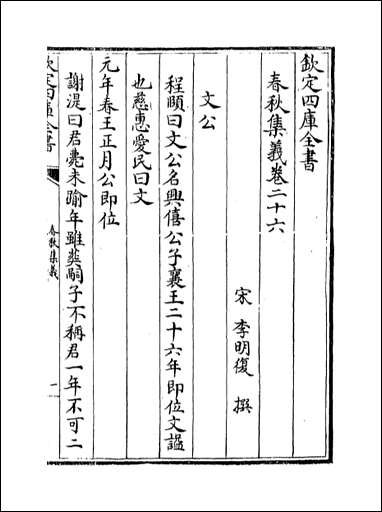 欽定四庫全書
春秋集義卷二十六
宋 李明復 撰
文公
程頤曰文公名興僖公子襄王二十六年即位文諡
也慈惠愛民曰文
元年春王正月公即位
謝湜曰君薨未踰年雖葬嗣子不稱君一年不可二
欽定四庫全書
春秋集義
一